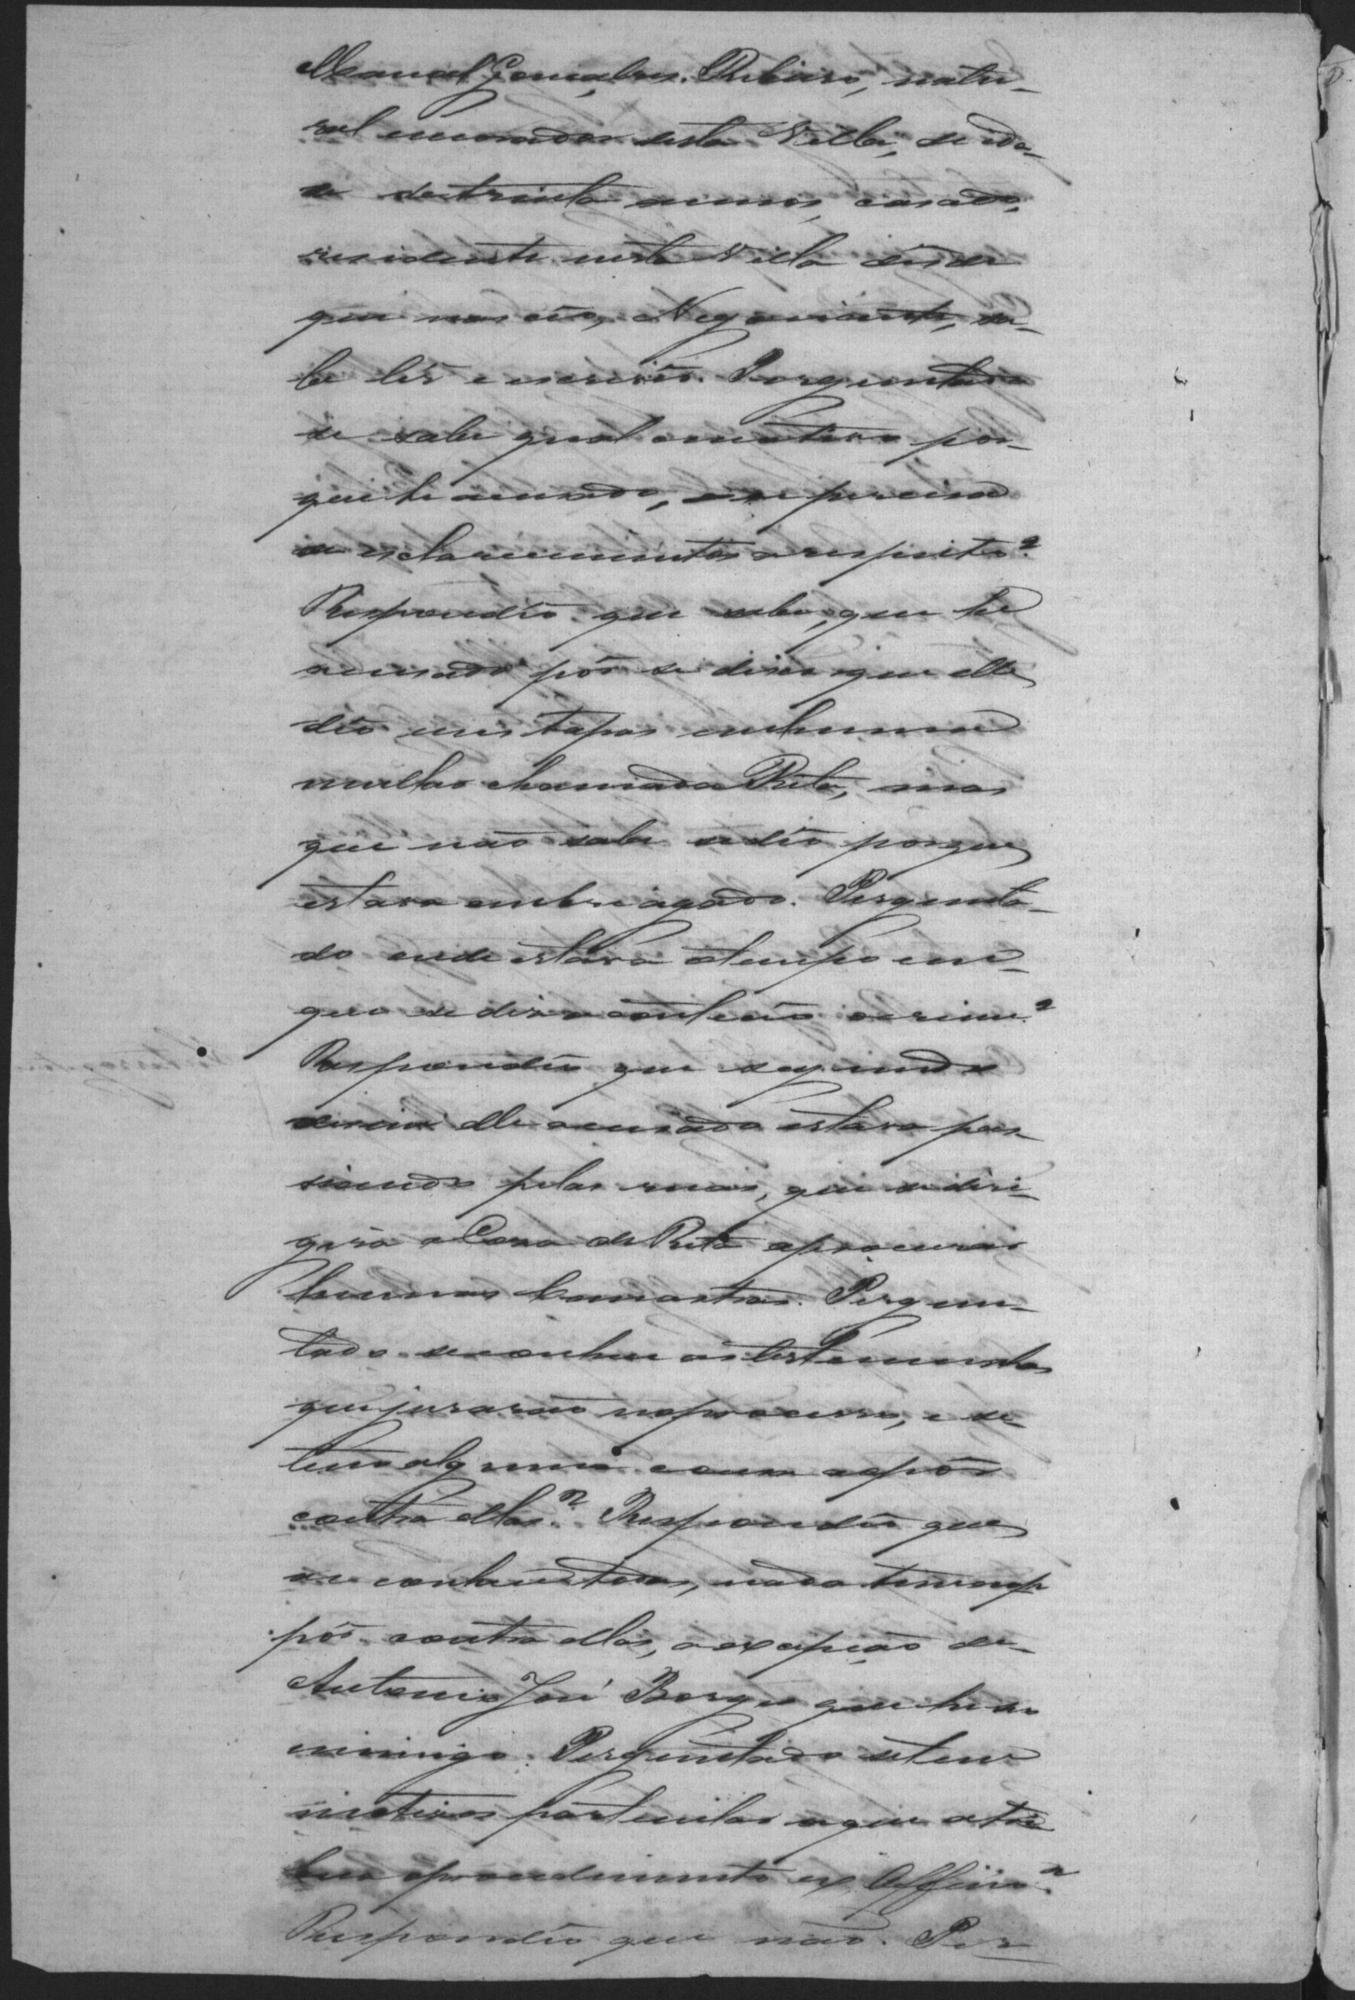 Manoel Gonçalves Ribeiro, natu-
ral emorador desta Villa, de ida-
de de trinta annos, casado,
residente nesta Villa desde
que nasceo, Negociante, sa-
be lêr e escrever. Perguntado
se sabe qual o motivo por
que he acusado, e se precisa
de esclarecimentos a respeito?
Respondêo que sabe, que he
acusado pôr se dizer que elle
dêo uns tapas em huma
mulher chamada Rita, mas
que não sabe se dêo porque
estava embriagado. Pergunta-
do onde estava o tempo em
que se diz aconteceo o crime?
Respondêo que segundo
elle acusado estava pas-
siando pelas ruas, que se diri-
gira a Casa de Rita a procurar
humas Perguen-
tado se conhece as testemunhas
que jurarão no processo, e se
tem alguma cousa a oppôr
contra ellas? Respondêo que
as conhece todas, nada tem a op-
pôr contra ellas, a excepção de
Antonio José Borges que he seu
inimigo. Perguntado se tem
motivos particular a que atri-
bua o procedimento ex Officio?
Respondêo que não. Per-